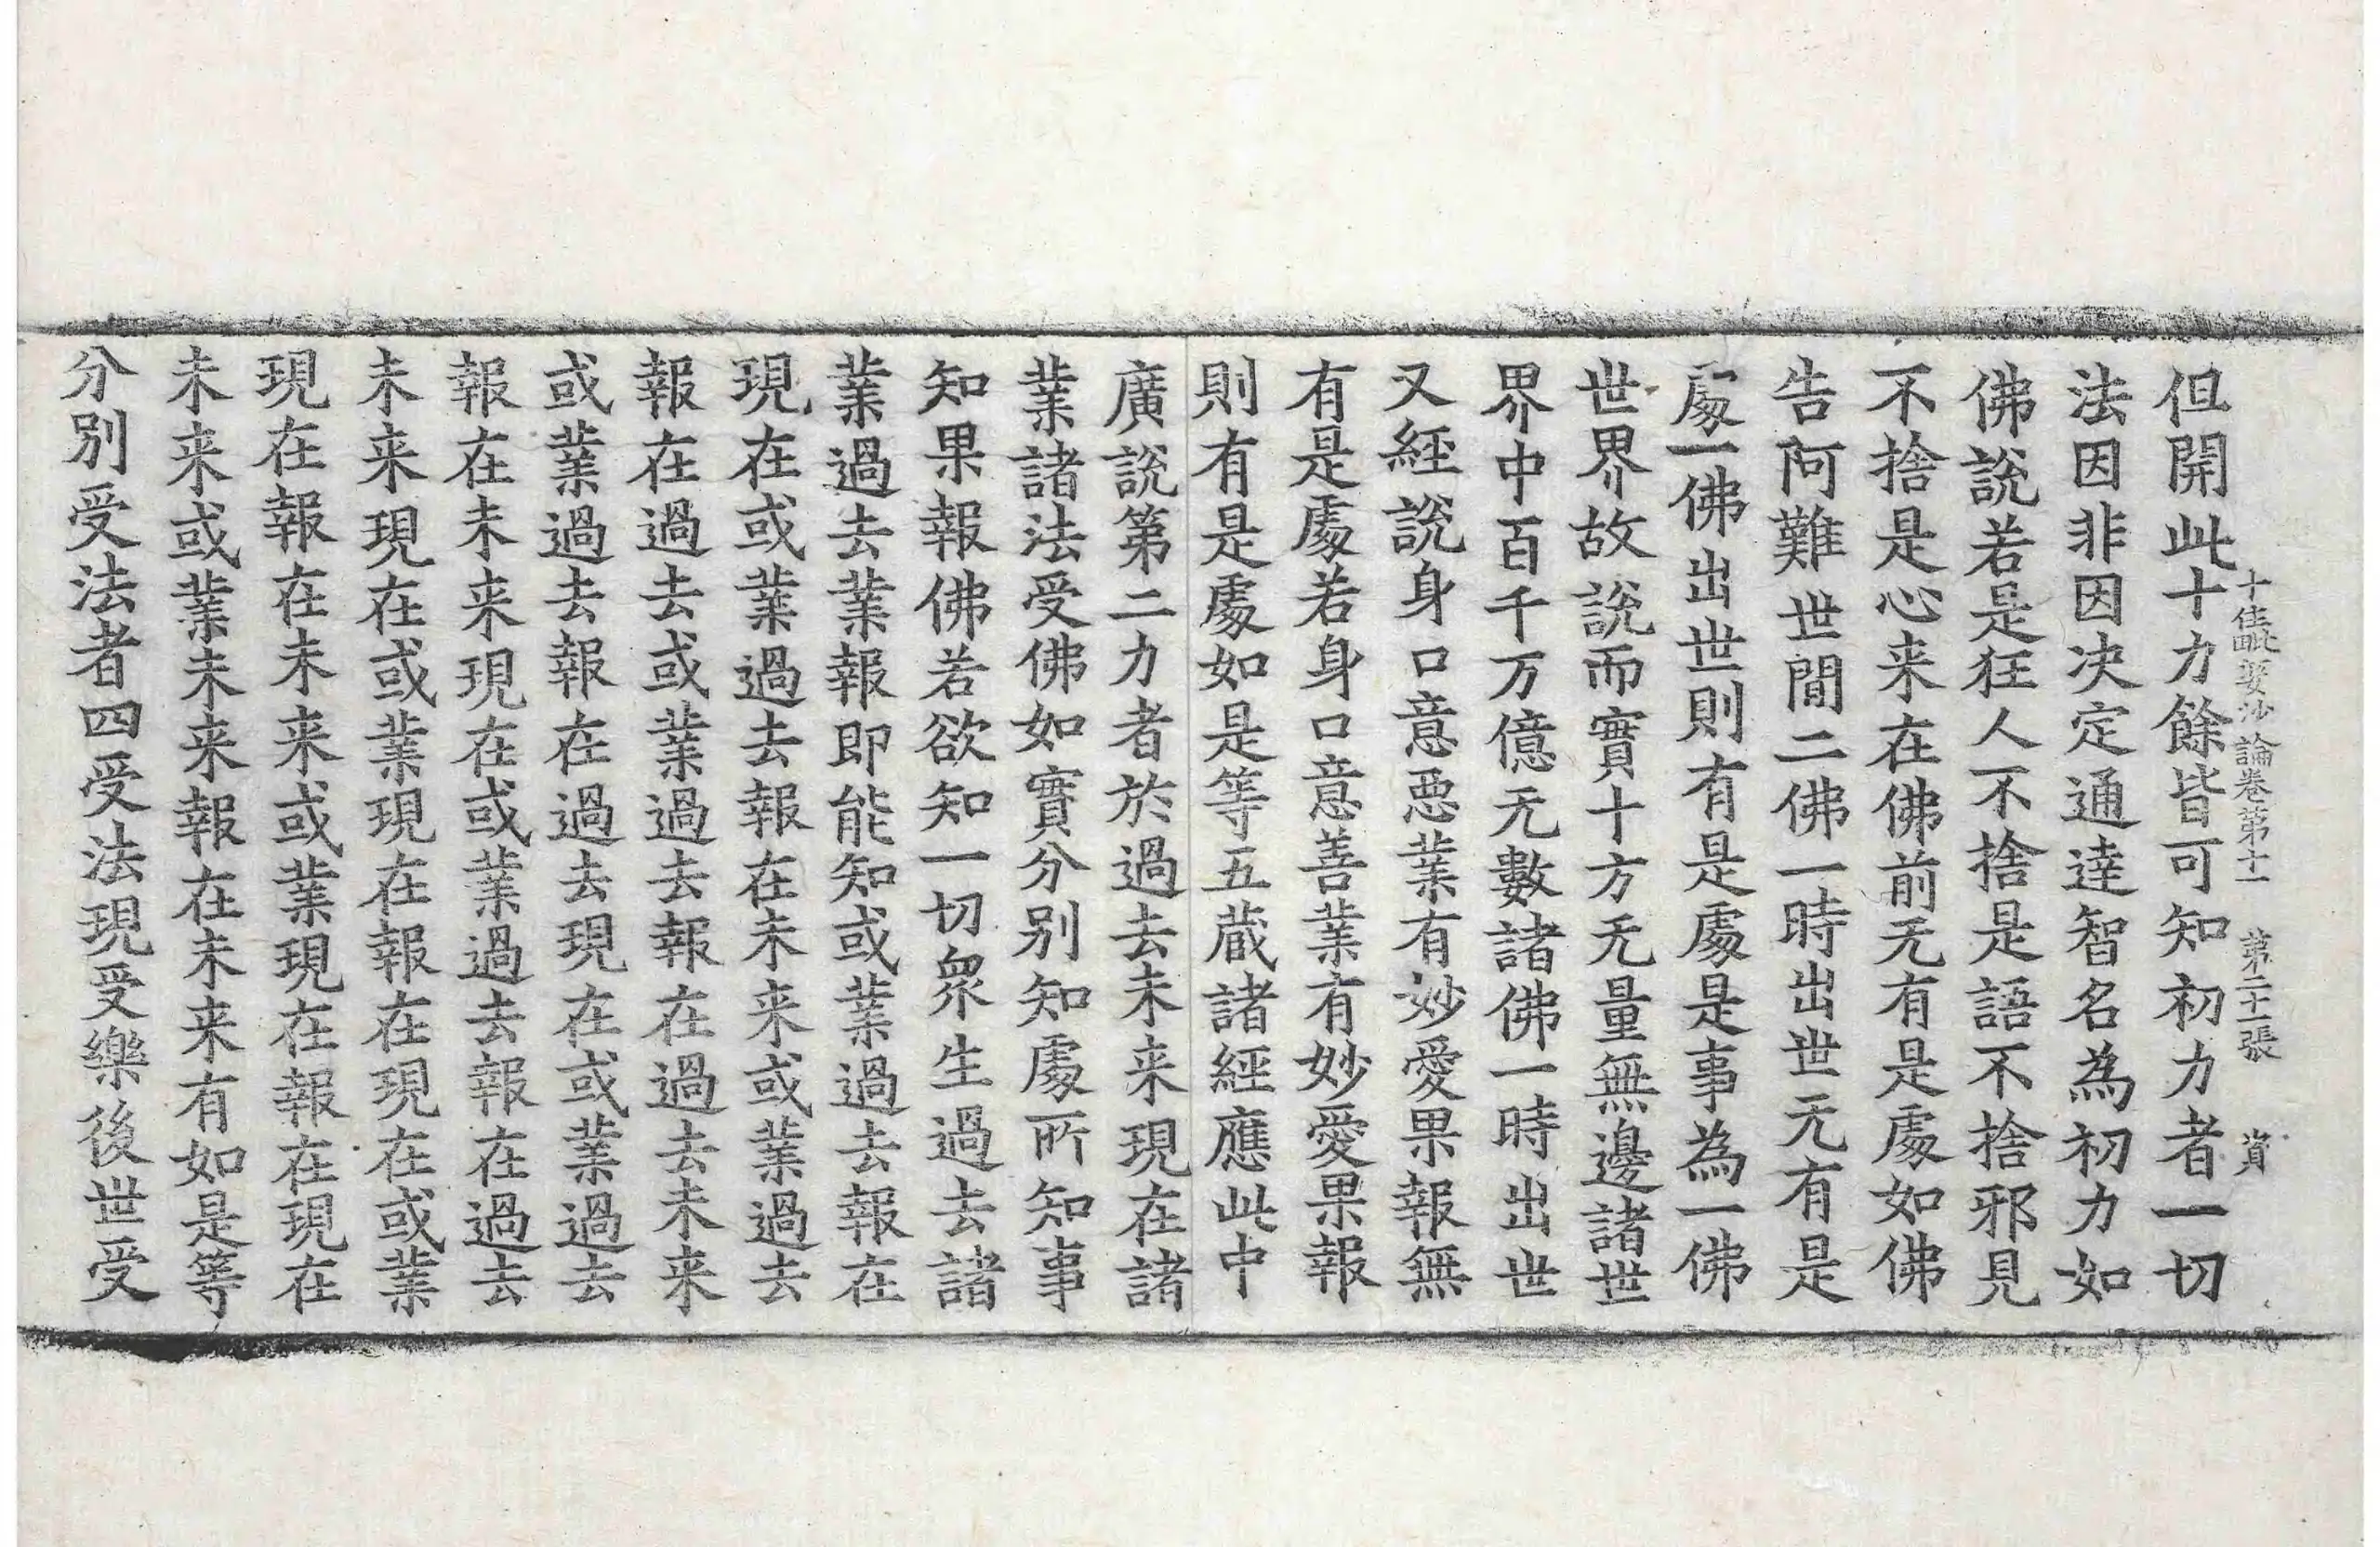 十住毗婆沙論卷第十一　第二十一張　資
但開此十力餘皆可知初力者一切
法因非因决定通達智名為初力如
佛說若是狂人不捨是語不捨邪見
不捨是心来在佛前无有是䖏如佛
告阿難世間二佛一時出世无有是
䖏一佛出世則有是䖏是事為一佛
世界故說而實十方无量無邊諸世
界中百千万億无數諸佛一時出世
又經說身口意惡業有妙愛果報無
有是䖏若身口意善業有妙愛果報
則有是䖏如是等五蔵諸經應此中
廣說第二力者於過去未来現在諸
業諸法受佛如實分別知䖏所知事
知果報佛若欲知一切衆生過去諸
業過去業報即能知或業過去報在
現在或業過去報在未来或業過去
報在過去或業過去報在過去未来
或業過去報在過去現在或業過去
報在未来現在或業過去報在過去
未来現在或業現在報在現在或業
現在報在未来或業現在報在現在
未来或業未来報在未来有如是等
分別受法者四受法現受樂後世受